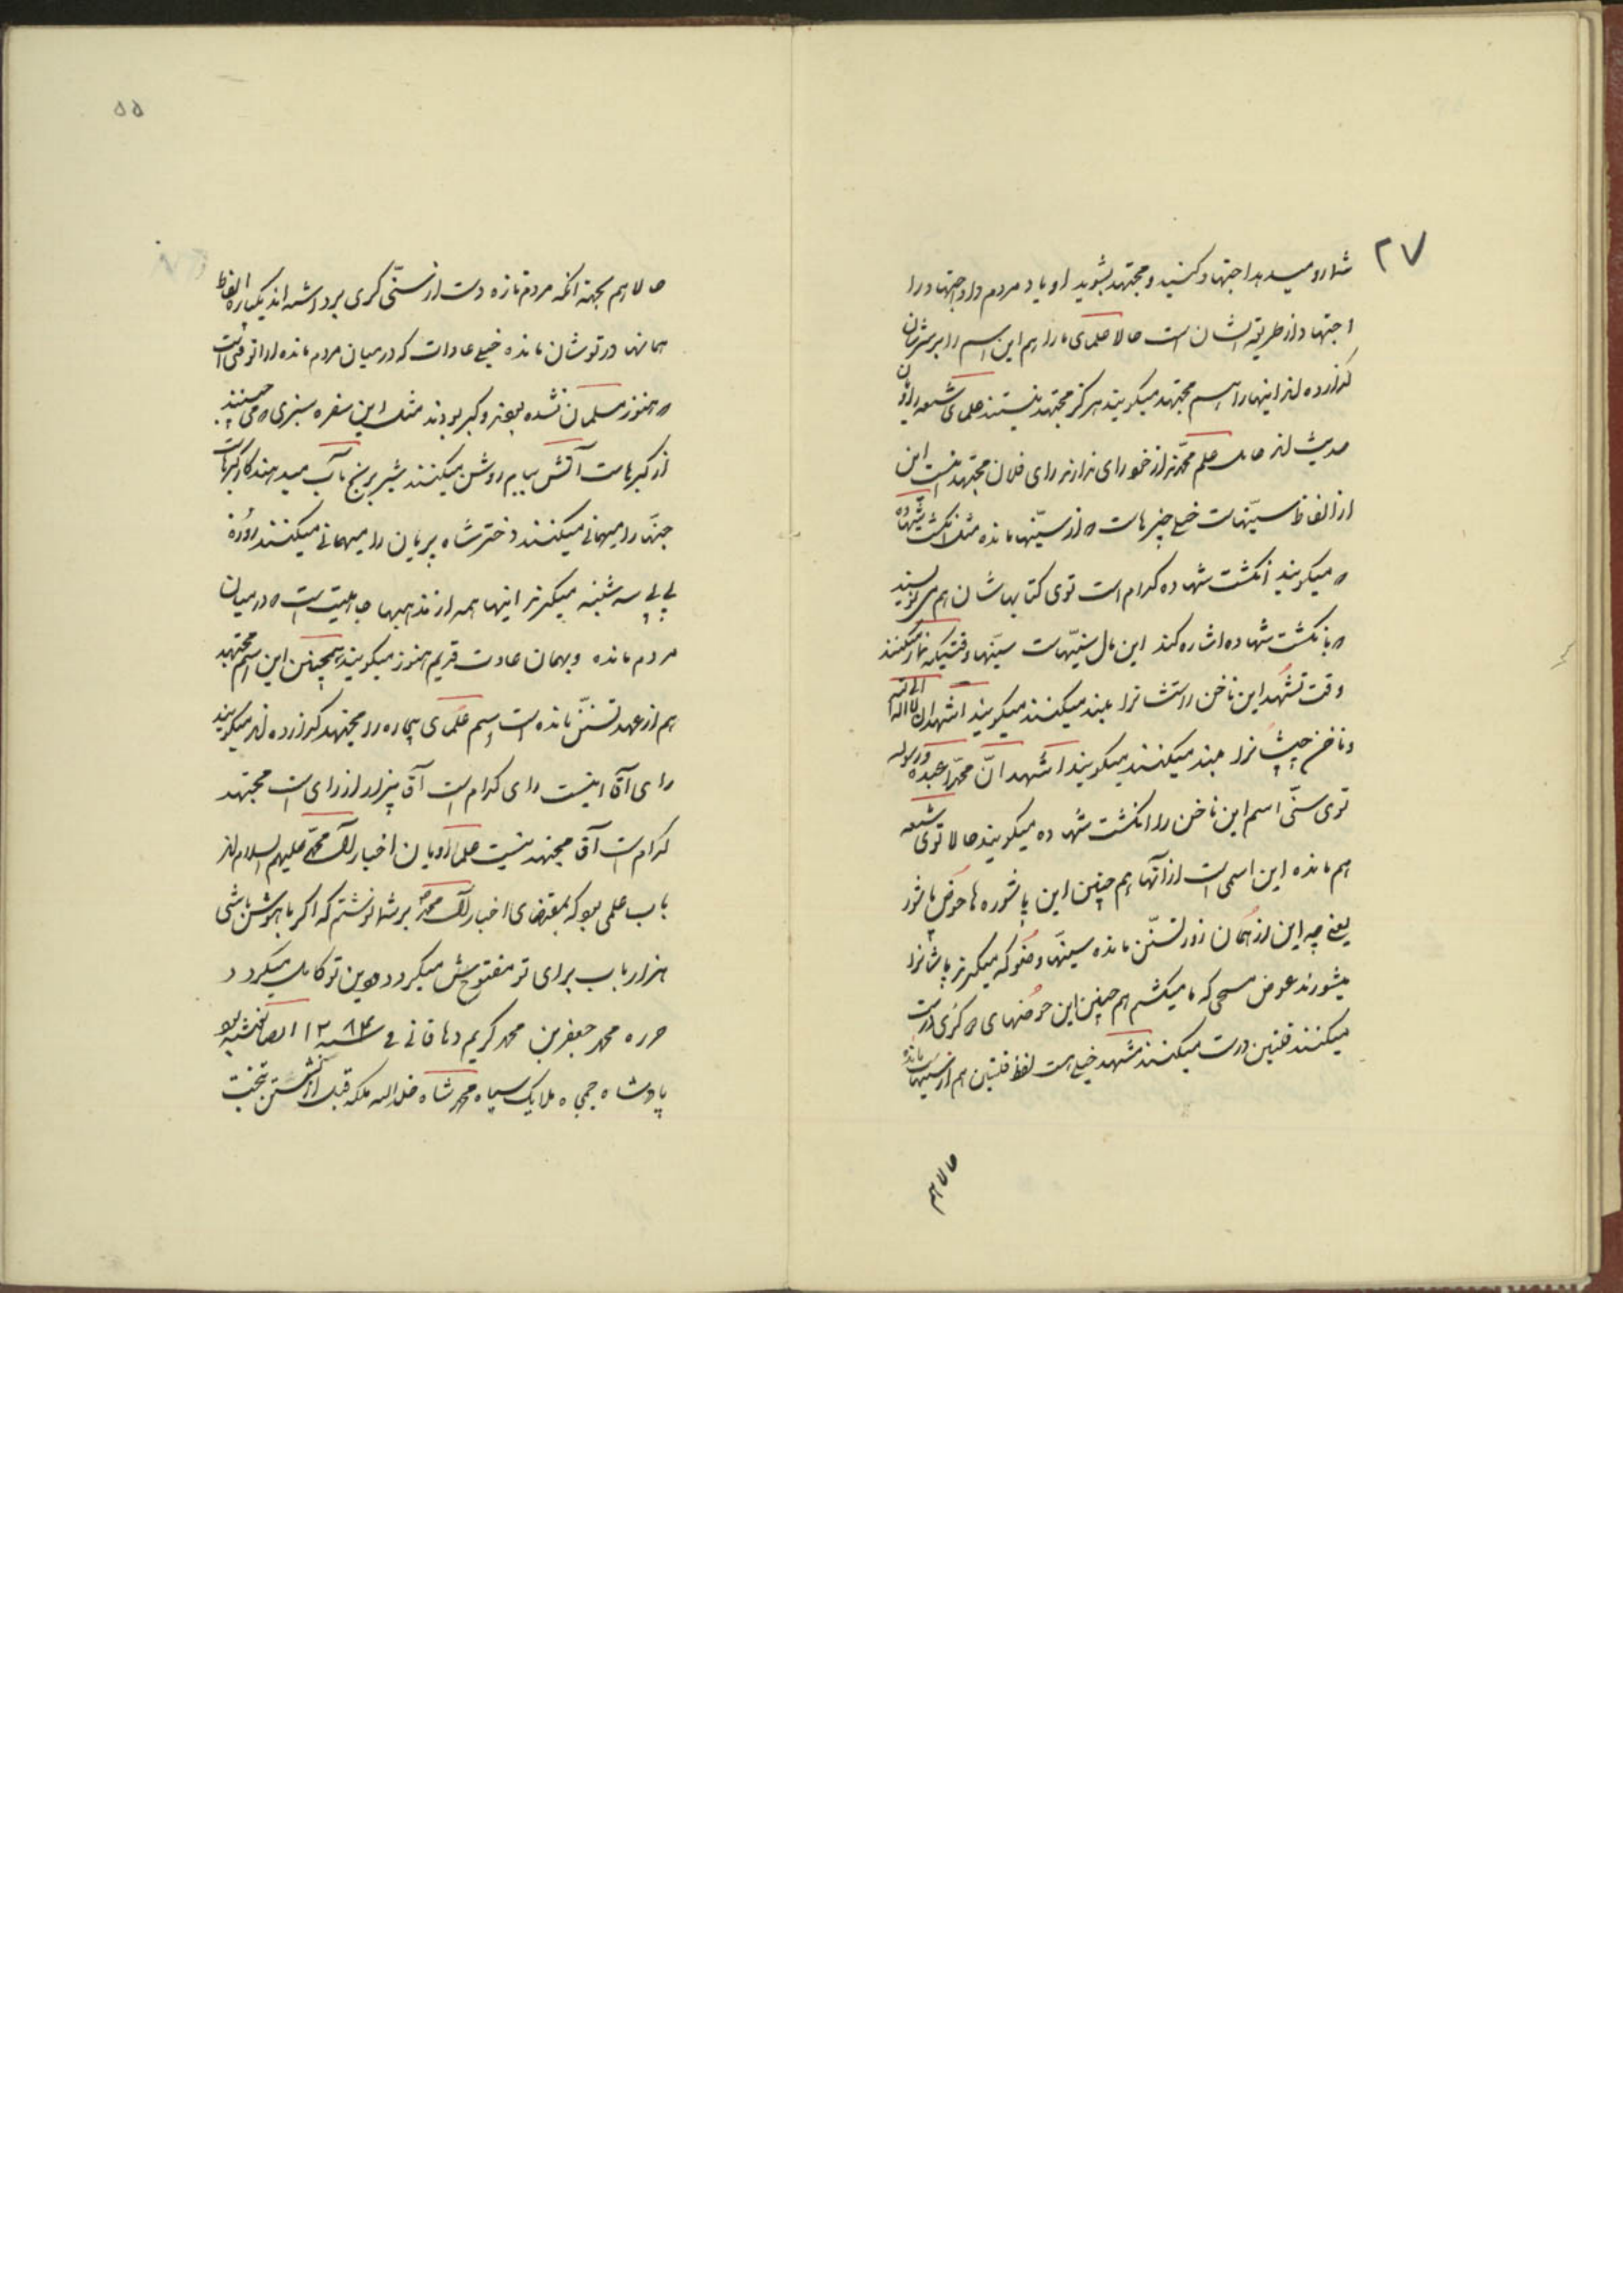 ۲۷
شما رو میدهد اجتهاد کنید و مجتهد بشوید او یاد مردم داد اجتهاد را
اجتهاد از طریقه ایشان است حالا علمای ما را هم این اسم را بر سرشان
گذارده اند اینها را اسم مجتهد میگویند هرگز مجتهد نیستند علمای شیعه راویان
حدیث اند حامل علم محمدند از خود رای ندارند رای فلان مجتهد نیست این
از الفاظ سنّیهاست خیلی چیزهاست که از سنّیها مانده مثل انگشت شهاده
که میگویند انگشت شهاده کدام است توی کتابهاشان هم می نویسند
که بانگشت شهاده اشاره کند این مال سنّیهاست سنّیها وقتیکه نماز میکنند
وقت تشهد این ناخن راستشانرا بلند میکنند میگویند اشهد ان لا اله الا الله
و ناخن چپشانرا بلند میکنند میگویند اشهد انّ محمّدا عبده و رسوله
توی سنّی اسم این ناخن را انگشت شهاده میگویند حالا توی شیعه
هم مانده این اسمی است از آنها هم چنین این پاشوره ها حوض پاشور
یعنی چه این از همان زور تسنّن مانده سنّیها وضو که میگیرند پاشانرا
میشورند عوض مسحی که ما میکشیم هم چنین این حوضهای که کری درست
میکنند قلتین درست میکنند مشهد خیلی هست لفظ قلتین هم از سنّیها مانده
حالا هم
۵۵
حالا هم بجهة آنکه مردم تازه دست از سنّی گری برداشته اند یکپاره الفاظ
همانها در توشان مانده خیلی عادات که در میان مردم مانده از آنوقتی است
که هنوز مسلمان نشده بودند و گبر بودند مثل این سفره سبزی که می چینند
از گبرهاست آتش ببام روشن میکنند شیر برنج بآب میدهند کار گبرهاست
جنّها را میهمانی میکنند دختر شاه پریان را میهمانی میکنند روزه
بی بی سه شنبه میگیرند اینها همه از مذهبهای جاهلیت است که در میان
مردم مانده و بهمان عادت قدیم هنوز میگویند همچنین این اسم مجتهد
هم از عهد تسنّن مانده است اسم علمای بیچاره را مجتهد گذارده اند میگویند
رای آقا اینست رای کدام است آقا بیزار از رای است مجتهد
کدام است آقا مجتهد نیست علما راویان اخبار آل محمّد علیهم السلام اند
باب علمی بود که بمقتضای اخبار آل محمّد برشما نوشتم که اگر باهوش باشی
هزار باب برای تو مفتوح میگردد و دین تو کامل میگردد
حرره محمد جعفر بن محمد کریم دهاقانی فی سنه ۱۲۸۴
پادشاه جمجاه ملایک سپاه محمد شاه خلد الله ملکه قبل از نشستن بتخت